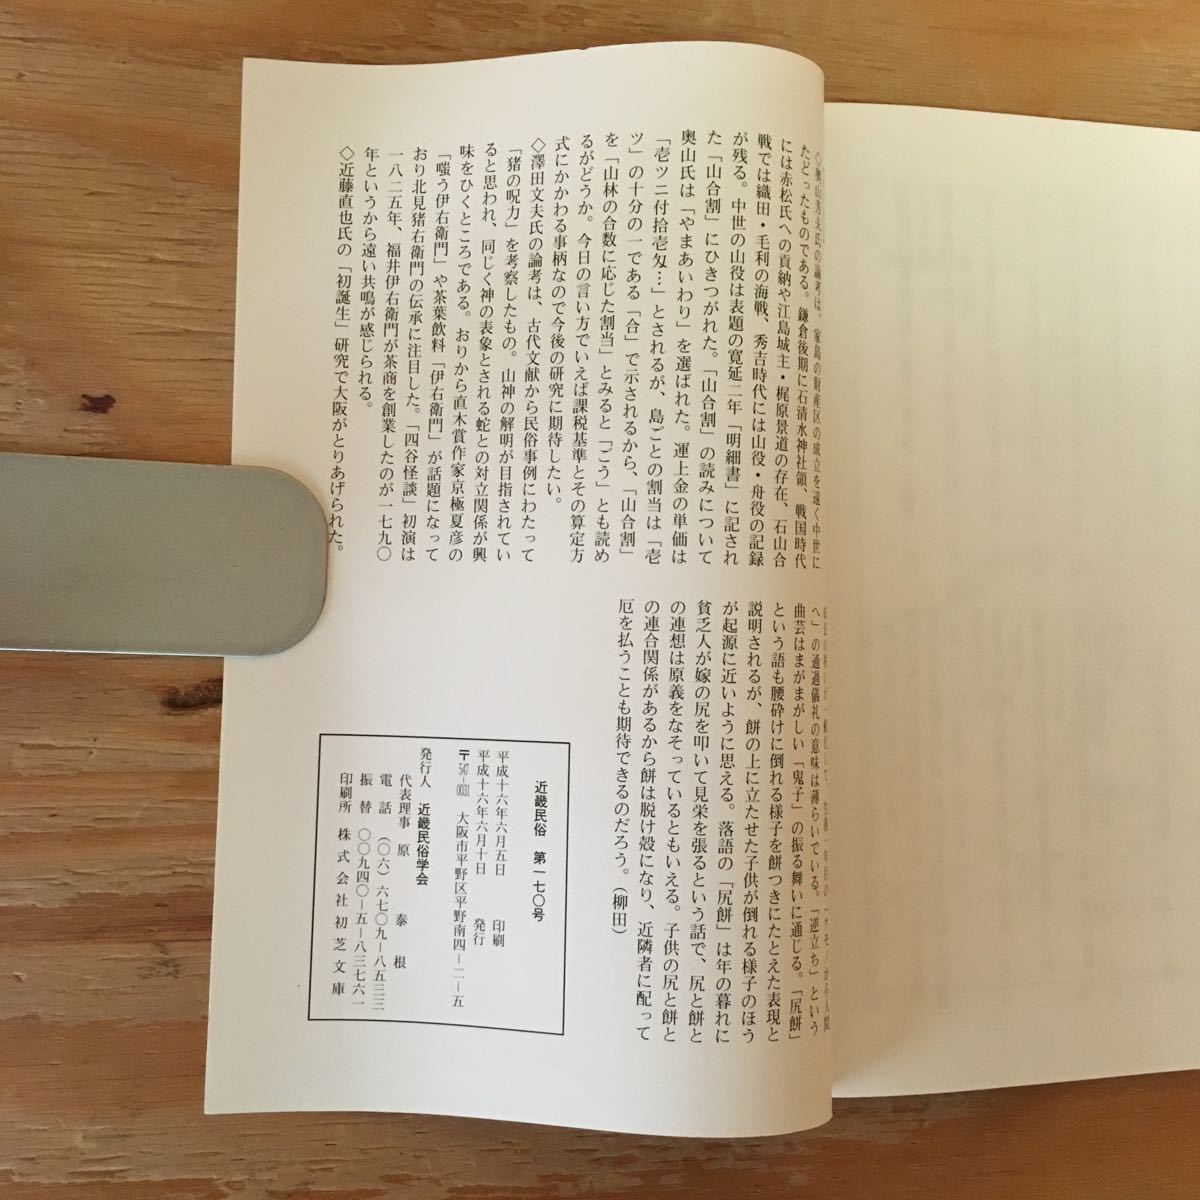 ◇奥山芳夫氏の論考は、家島の財産区の成立を遠く中世に
たどったものである。鎌倉後期に石清水神社領、戦国時代
には赤松氏への貢納や江島城主・梶原景道の存在、石山合
戦では織田・毛利の海戦、秀吉時代には山役・舟役の記録
が残る。中世の山役は表題の寛延二年「明細書」に記され
た「山合割」にひきつがれた。「山合割」の読みについて
奥山氏は「やまあいわり」を選ばれた。運上金の単価は
「壱ツニ付拾壱匁…」とされるが、島ごとの割当は「壱
ツ」の十分の一である「合」で示されるから、「山合割」
を「山林の合数に応じた割当」とみると「ごう」とも読め
るがどうか。今日の言い方でいえば課税基準とその算定方
式にかかわる事柄なので今後の研究に期待したい。
◇澤田文夫氏の論考は、古代文献から民俗事例にわたって
「猪の呪力」を考察したもの。山神の解明が目指されてい
ると思われ、同じく神の表象とされる蛇との対立関係が興
味をひくところである。おりから直木賞作家京極夏彦の
「嗤う伊右衛門」や茶葉飲料「伊右衛門」が話題になって
おり北見猪右衛門の伝承に注目した。「四谷怪談」初演は
一八二五年、福井伊右衛門が茶商を創業したのが一七九〇
年というから遠い共鳴が感じられる。
◇近藤直也氏の「初誕生」研究で大阪がとりあげられた。
から人間
へ」の通過儀礼の意味は薄らいでいる。「逆立ち」という
曲芸はまがまがしい「鬼子」の振る舞いに通じる。「尻餅」
という語も腰砕けに倒れる様子を餅つきにたとえた表現と
説明されるが、餅の上に立たせた子供が倒れる様子のほう
が起源に近いように思える。落語の「尻餅」は年の暮れに
貧乏人が嫁の尻を叩いて見栄を張るという話で、尻と餅と
の連想は原義をなぞっているともいえる。子供の尻と餅と
の連合関係があるから餅は脱け殻になり、近隣者に配って
厄を払うことも期待できるのだろう。（柳田）
近畿民俗　第一七〇号
平成十六年六月五日　印刷
平成十六年六月十日　発行
〒547-0031　大阪市平野区平野南四−二−五
発行人　近畿民俗学会
代表理事　原　泰根
電話　（〇六）六七〇九−八五三三
振替　〇〇九四〇−五−八三七六一
印刷所　株式会社初芝文庫